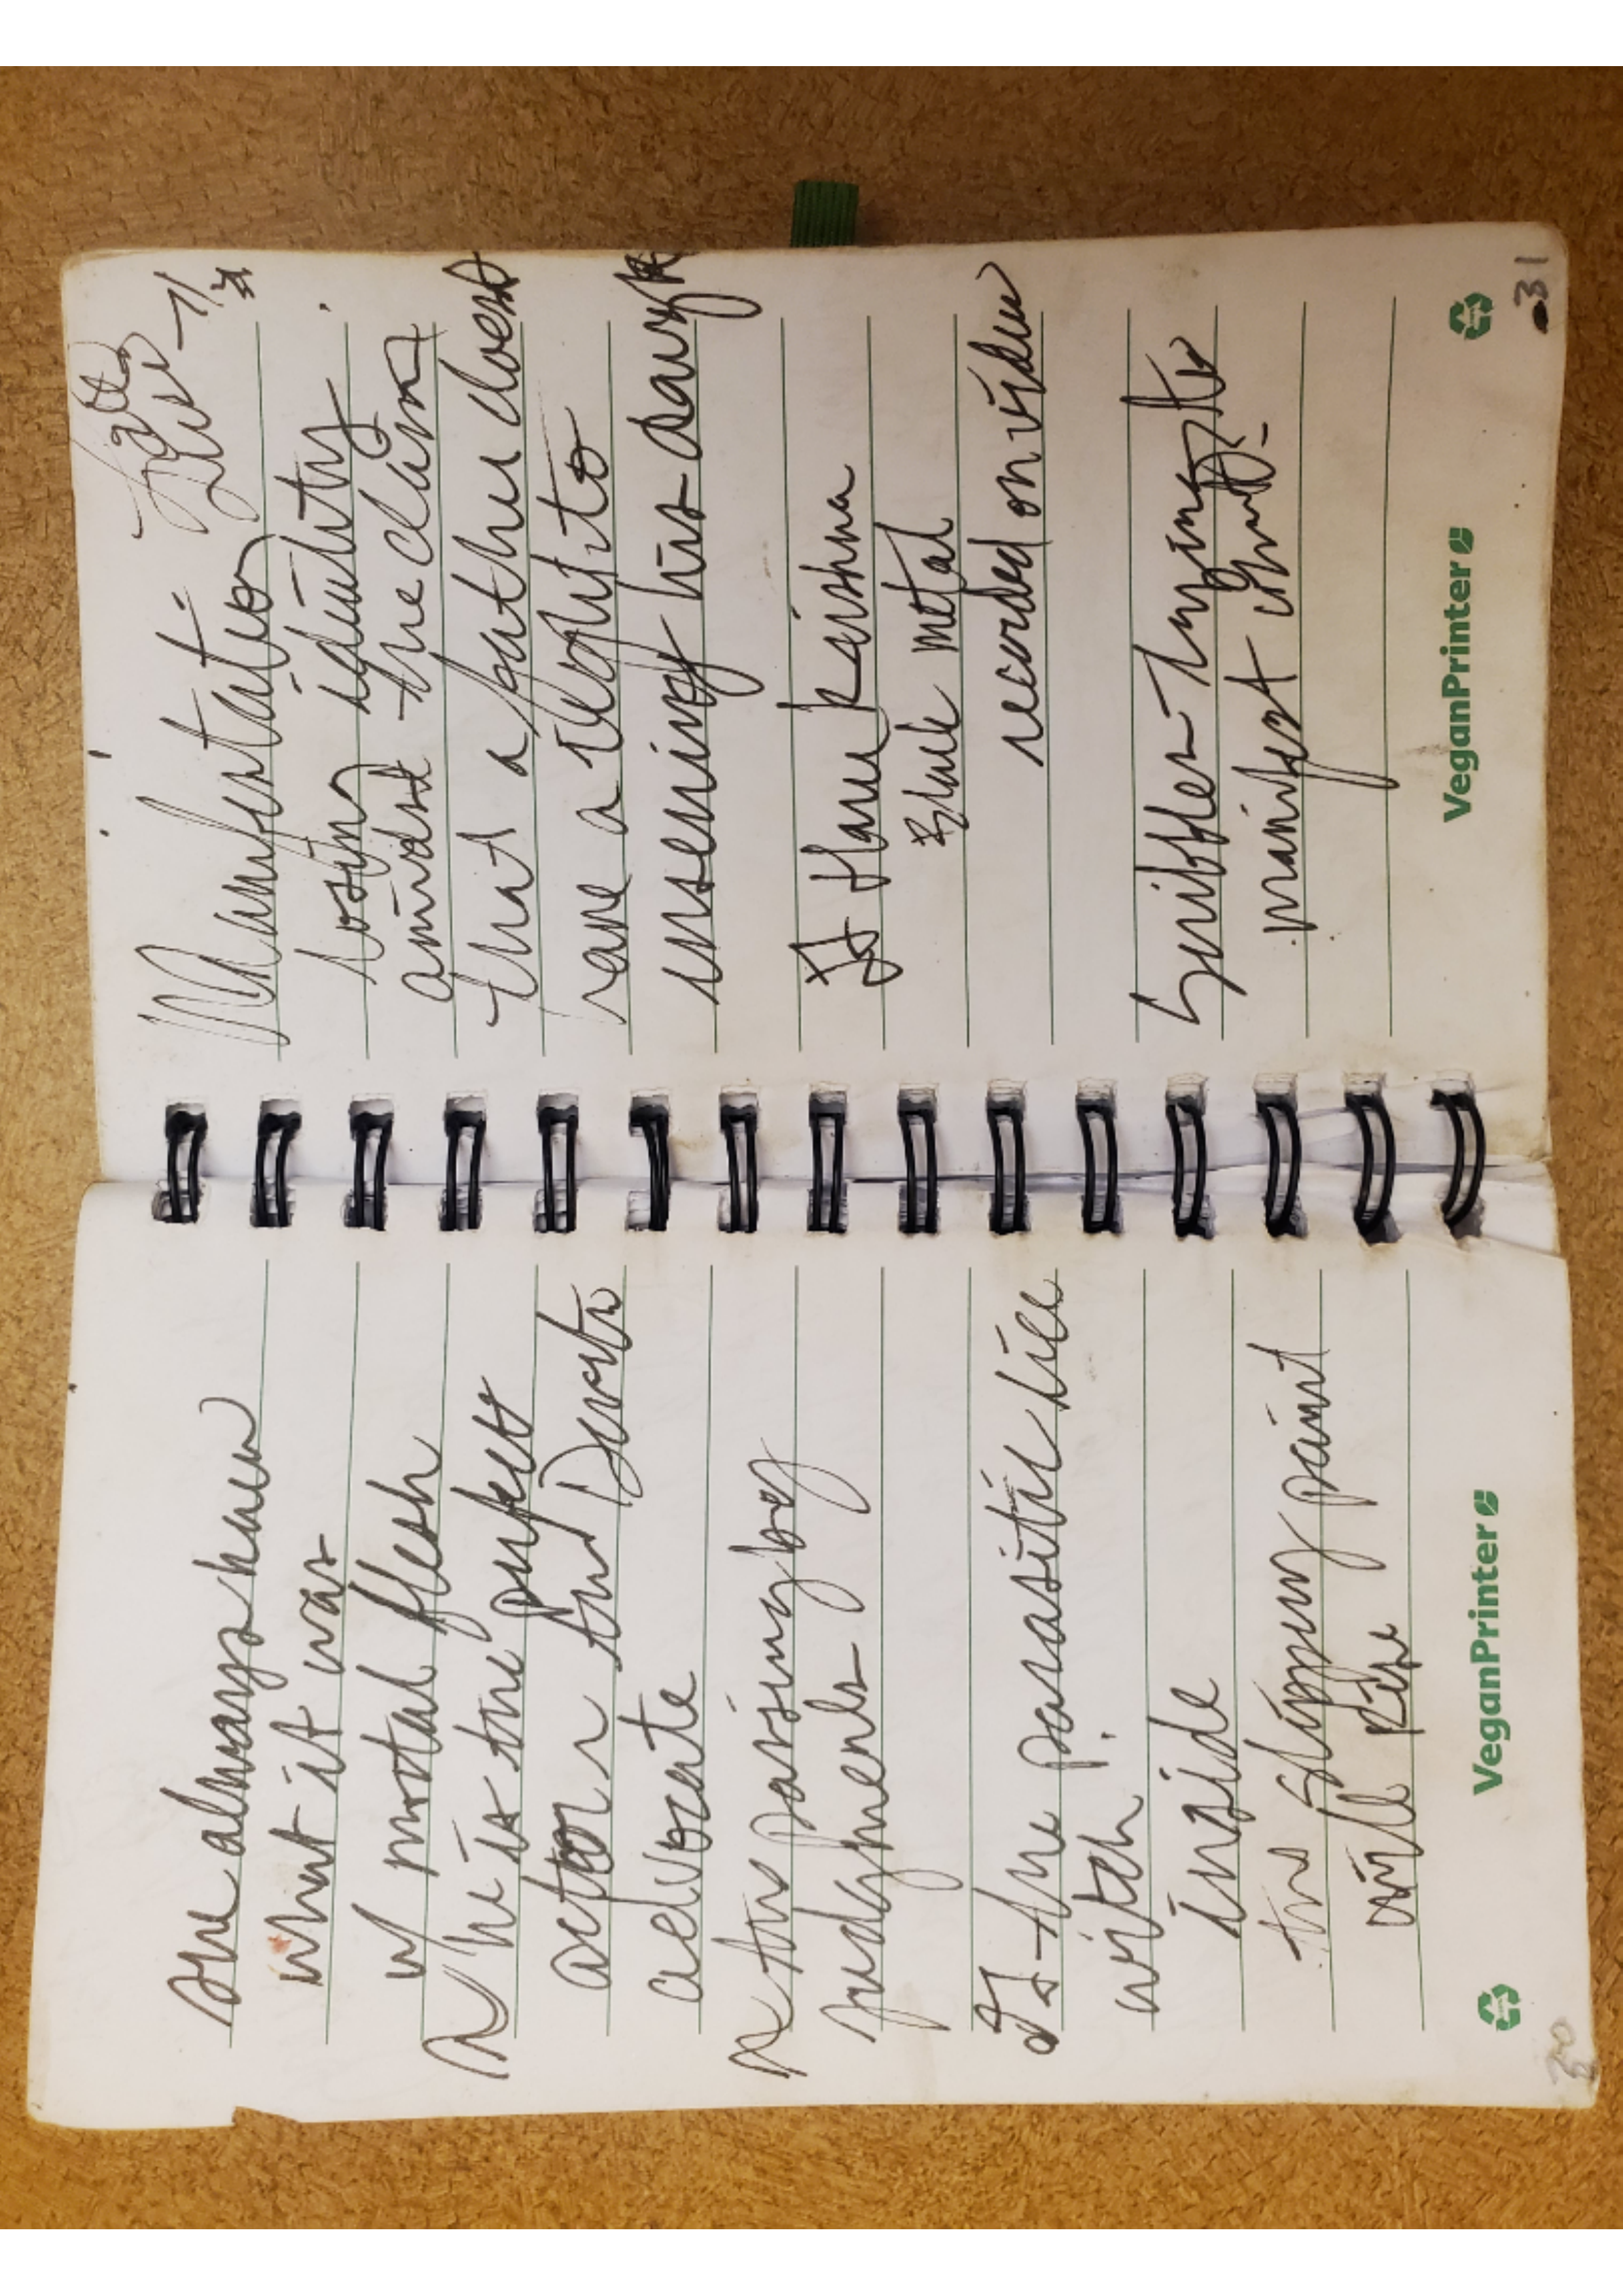 she always knew
what it was
w/ mortal flesh
he is the perfect
actor and Devil's
advocate
the passing by
judgments
the parasitic lice
witch
inside
the slipping paint
will
VeganPrinter
30
Manifestation
losing identity
amidst the claim
that a father doesn't
have a right to
inseminy his daught
Hare Krishna
Black metal
recorded on video
Sniffles - trying to
manifest
VeganPrinter
31